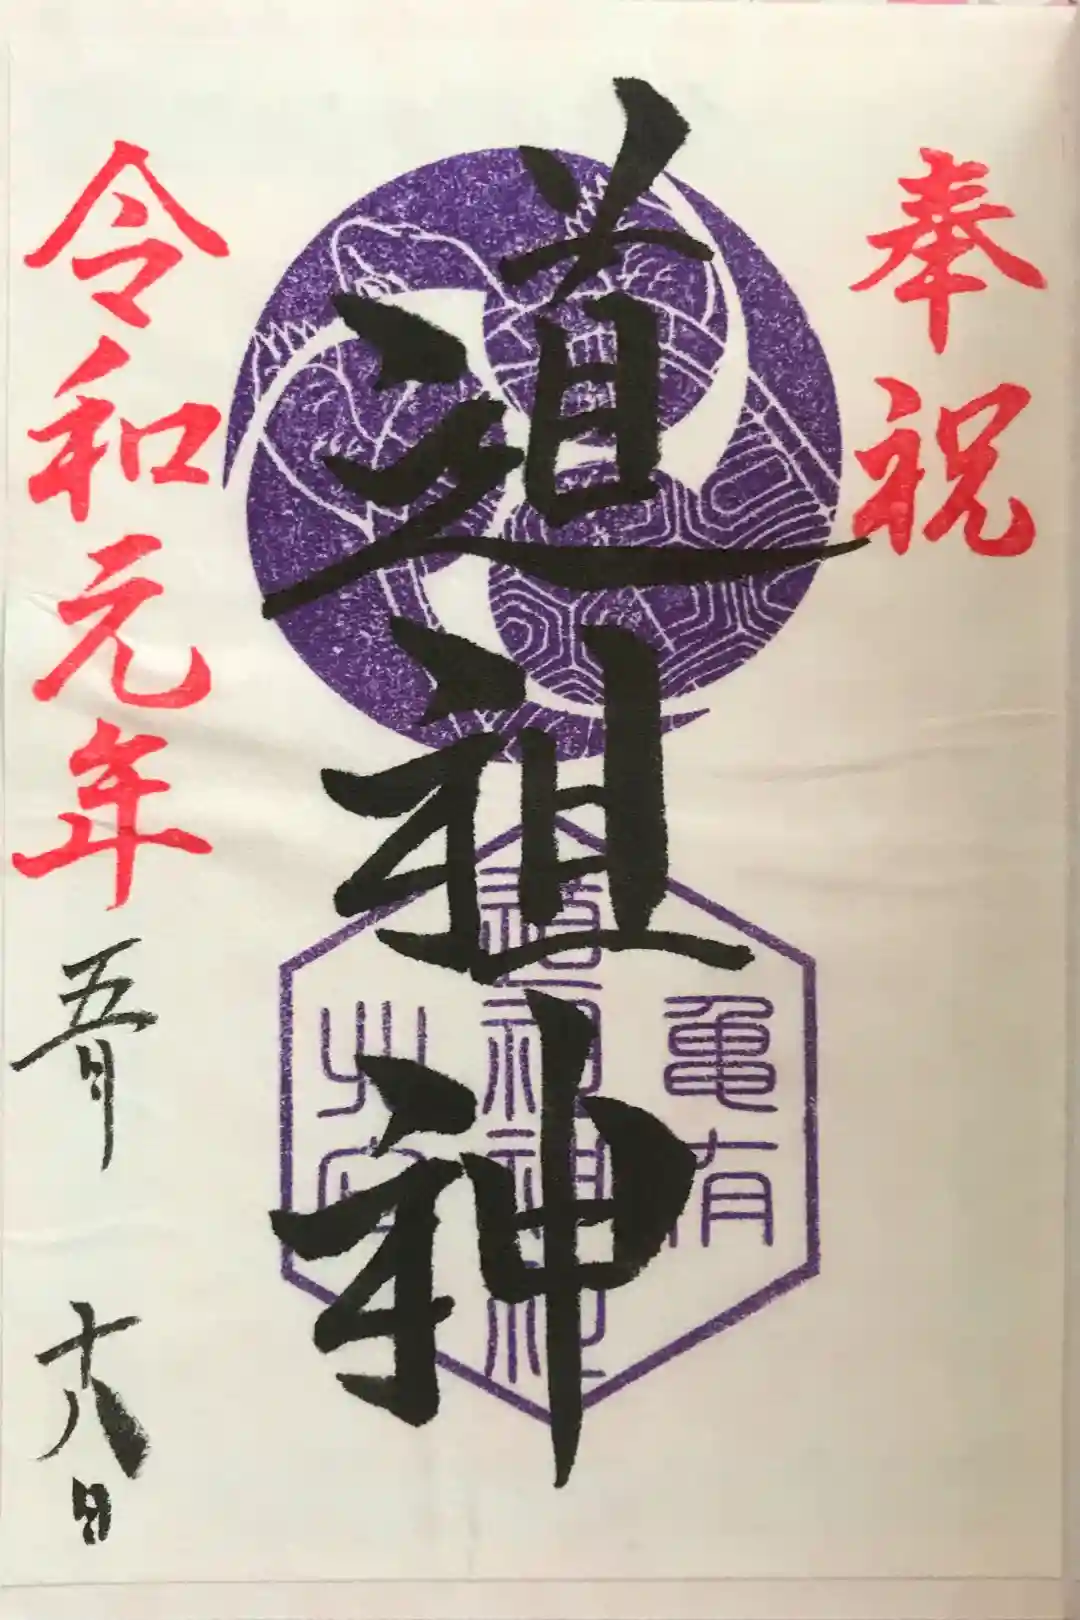 奉祝
道祖神
亀有
令和元年五月十八日